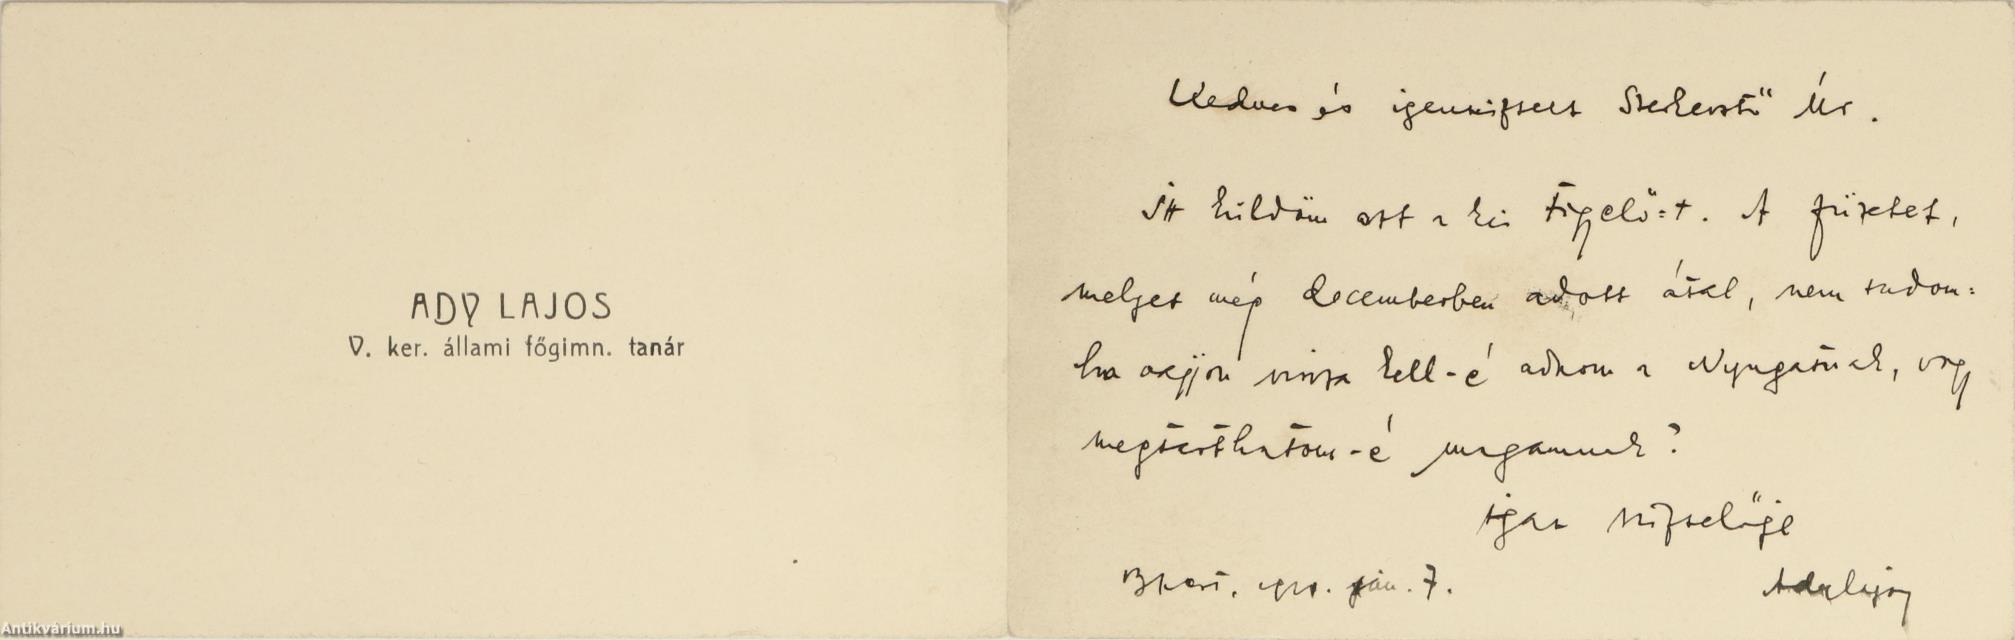 ADY LAJOS
V. ker. állami főgimn. tanár
Kedves és igen tisztelt Szerkesztő Úr.
Itt küldöm a kis Figyelő-t. A füzetet,
melyet még decemberben adott átal, nem tudom:
ha vajjon vissza kell-é adnom a Nyugatnak, vagy
megtarthatom-é magamnak?
Igaz tisztelője
Bpest, jan. 7.
Ady Lajos
Antikvárium.hu